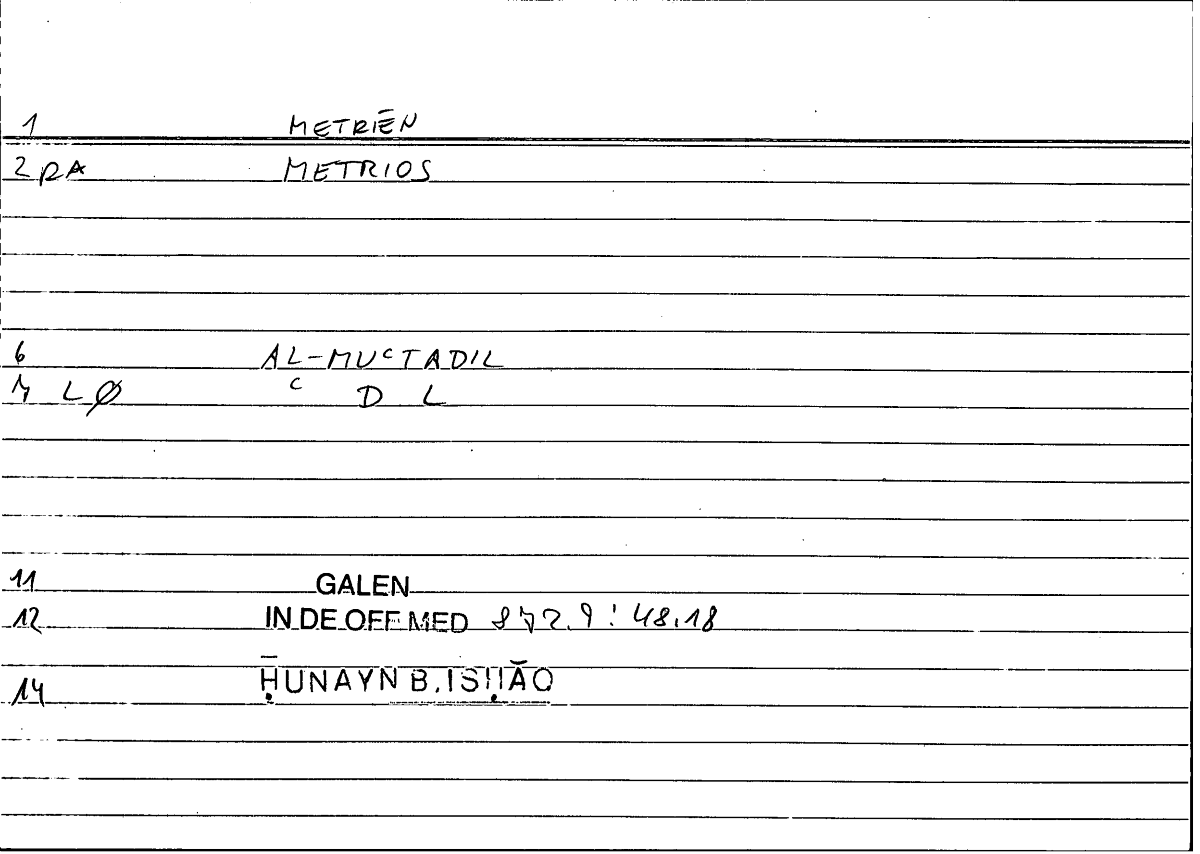 1 METRIĒN
2 DA METRIOS
6 AL-MUᶜTADIL
7 LØ ᶜ D L
11 GALEN
12 IN DE OFF MED 872.9 : 48.18
14 ḤUNAYN B. ISḤĀQ